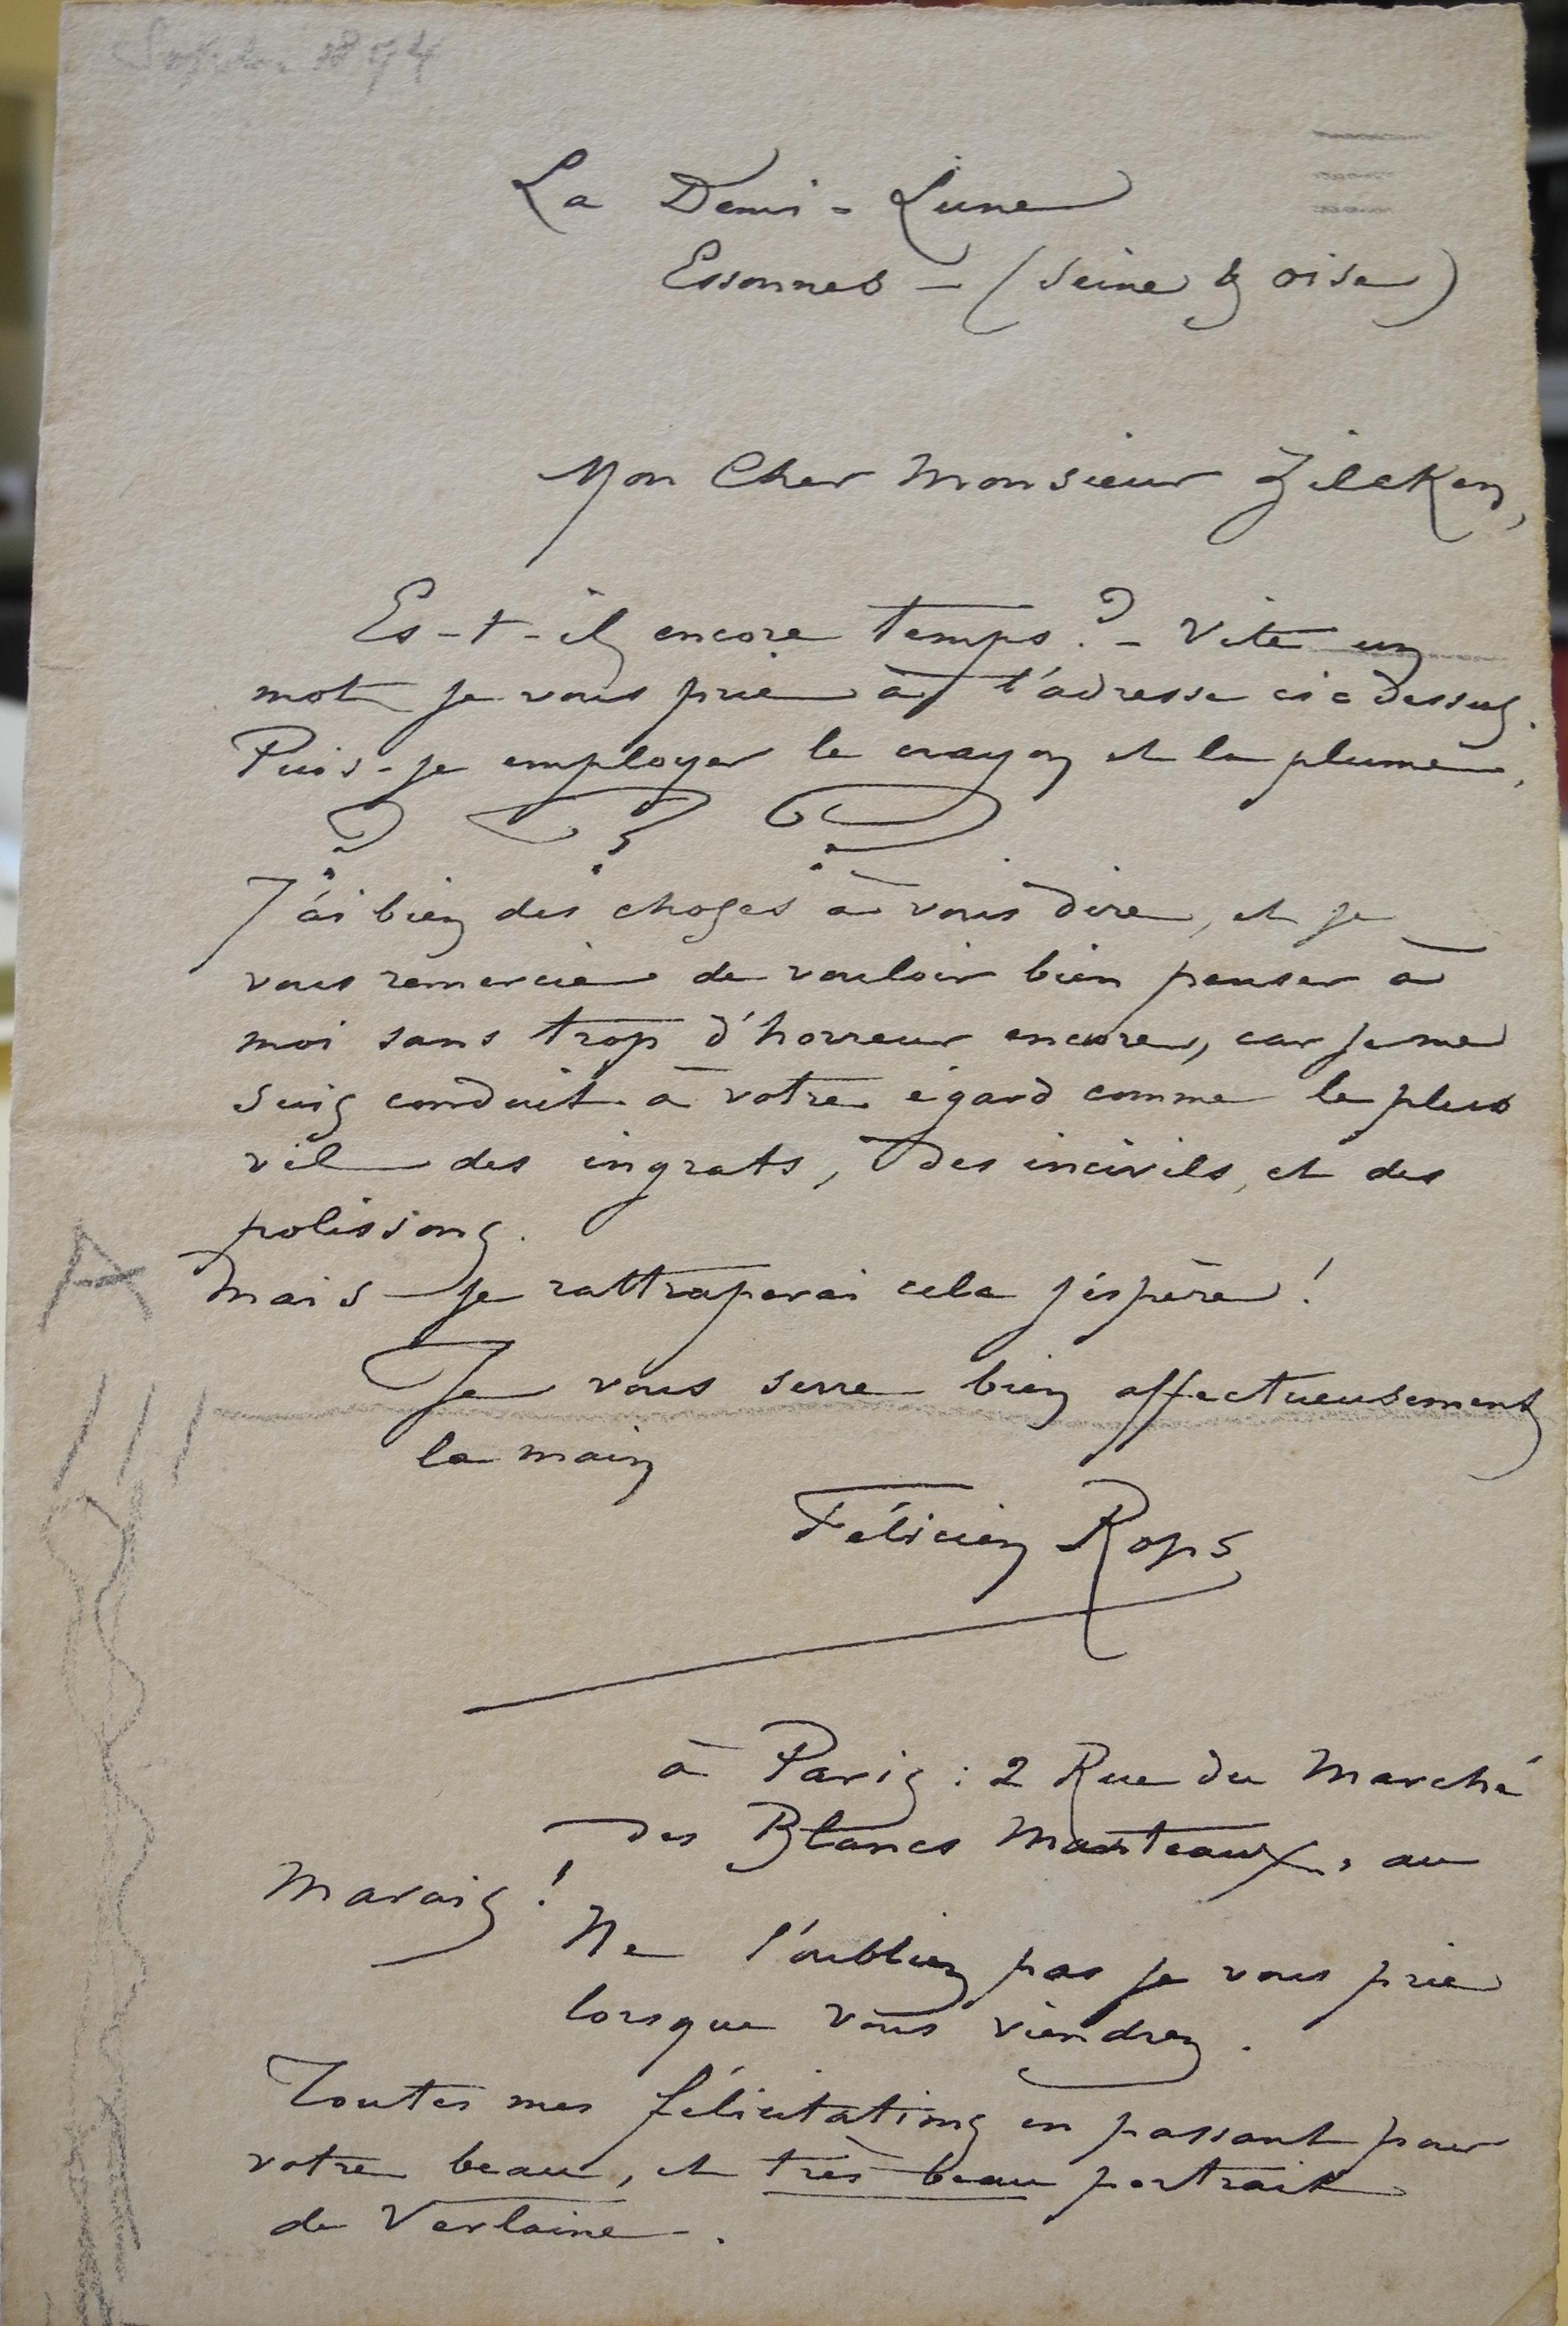 1894
La Demi-Lune
Essonnes – (Seine & oise)
Mon Cher Monsieur Zilcken,
Es-t-il encore temps? – Vite un
mot je vous prie à l'adresse ci-dessus.
Puis-je employer le crayon et la plume,
? ? ?
J'ai bien des choses à vous dire, et je
vous remercie de vouloir bien penser à
moi sans trop d'horreur encore, car je me
suis conduit à votre égard comme le plus
vil des ingrats, des incivils, et des
polissons.
A
Mais je rattraperai cela j'éspère!
Je vous serre bien affectueusement
la main
Félicien Rops
à Paris : 2 Rue du Marché
des Blancs Manteaux, au
Marais!
Ne l'oubliez pas je vous prie
lorsque vous viendrez.
Toutes mes félicitations en passant pour
votre beau, et très beau portrait
de Verlaine –.